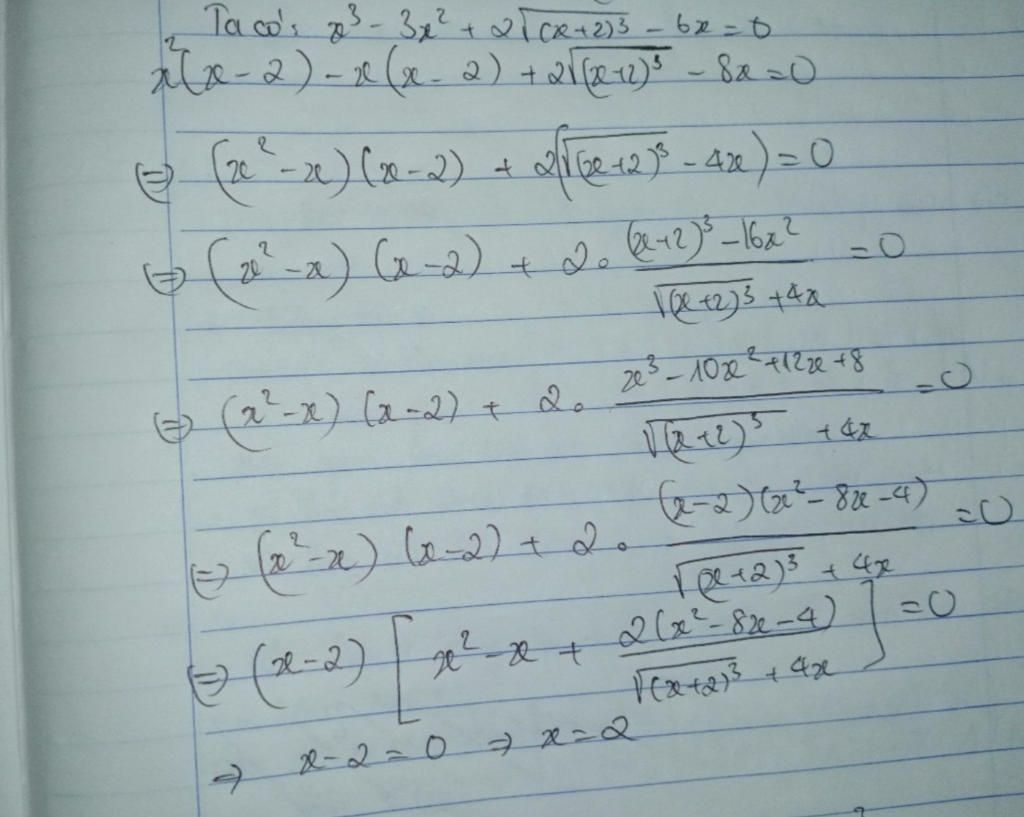 Ta có: x³ - 3x² + 2√(x+2)³ - 6x = 0
x²(x-2) - x(x-2) + 2√(x+2)³ - 8x = 0
⇔ (x² - x)(x-2) + 2(√(x+2)³ - 4x) = 0
⇔ (x² - x)(x-2) + 2. ((x+2)³ - 16x²)/(√(x+2)³ + 4x) = 0
⇔ (x² - x)(x-2) + 2. (x³ - 10x² + 12x + 8)/(√(x+2)³ + 4x) = 0
⇔ (x² - x)(x-2) + 2. ((x-2)(x² - 8x - 4))/(√(x+2)³ + 4x) = 0
⇔ (x-2)[x² - x + 2(x² - 8x - 4)/(√(x+2)³ + 4x)] = 0
⇒ x-2 = 0 ⇒ x = 2